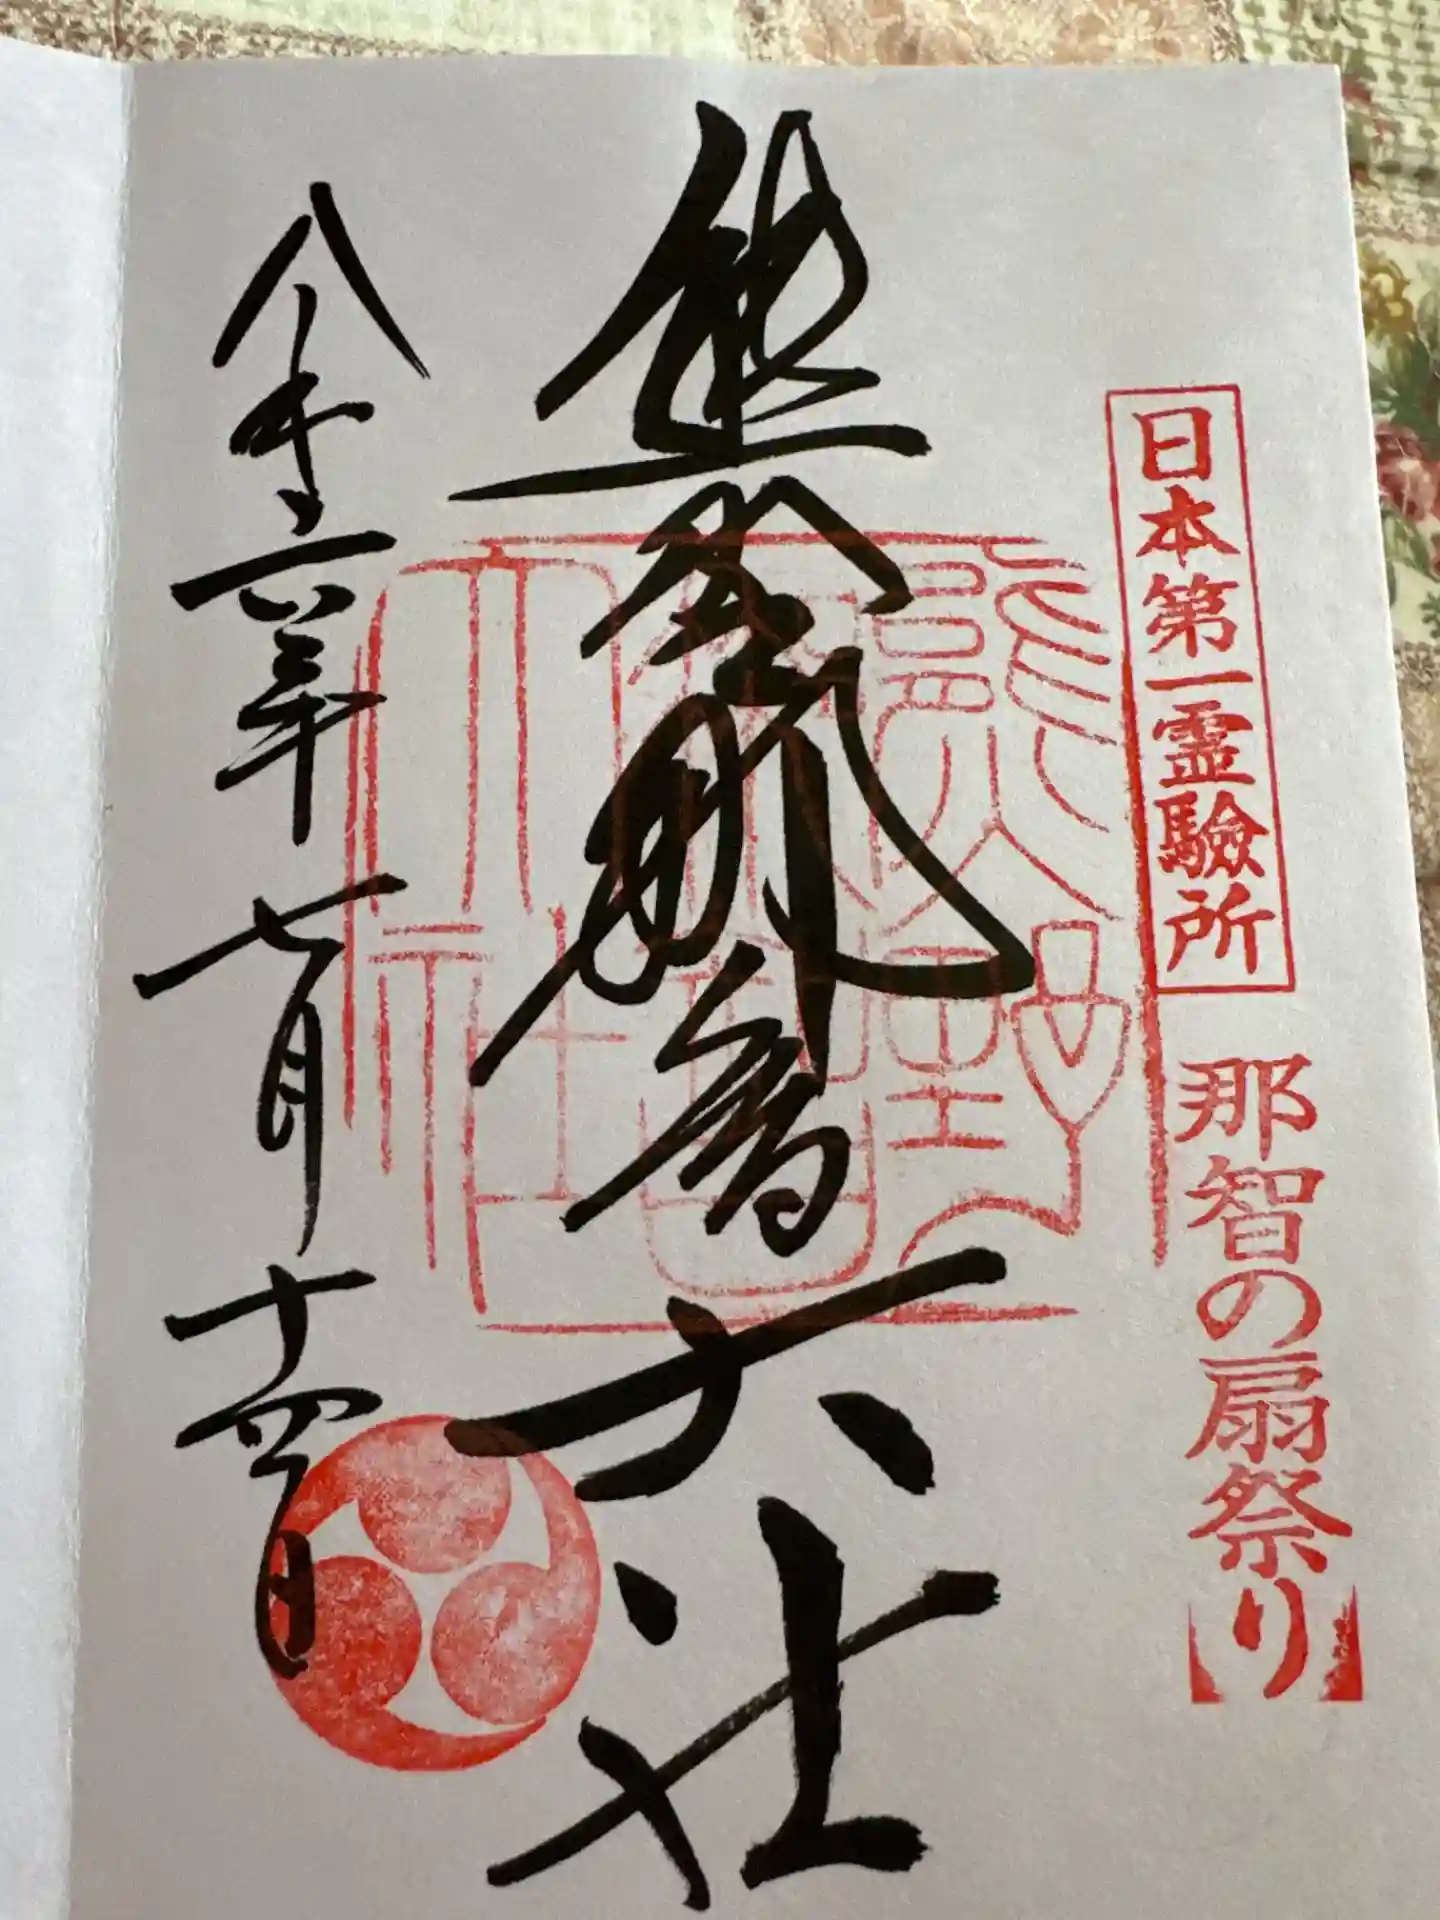 日本第一霊驗所
那智の扇祭り
熊野那智大社
令和六年七月十四日